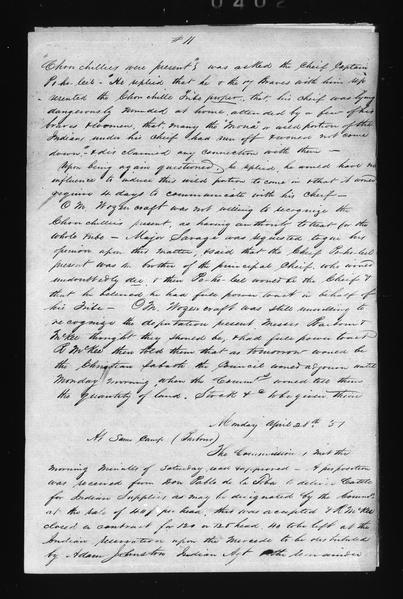 # 11
Chouchillies were present", was asked the Chief Captain
Po-ho-leel - He replied that he & the 84 Braves with him rep
-resented the Chouchille Tribe proper, that his chief was lying
dangerously wounded at home, attended by a few of his
braves & women, that many of the "Mona", a wild portion of the
Indians under his chief had run off & would not come
down," & disclaimed any connection with them
Upon being again questioned, he replied, he would have no
influence to induce this wild portion to come in & that it would
require 4 days to communicate with his Chief -
O M Wozencraft was not willing to recognize the
Chouchillies present, as having authority to treat for the
whole tribe - Major Savage was requested to give his
opinion upon this matter, & said that the Chief Po-ho-leel
present was the brother of the principal Chief, who would
undoubtedly die, & then Po-ho-leel would be the Chief &
that he believed he had full power to act in behalf of
his Tribe - O M. Wozencraft was still unwilling to
recognize the deputation present Messrs Barbour &
McKee thought they should be, & had full power to act
R McKee then told them that as tomorrow would be
the Christian Sabbath the Council would adjourn until
Monday morning when the Commrs would tell them
the quantity of land, Stock &c to be given them
Monday April 28th '51
At Same Camp (Barbour)
The Commissioners met the
morning minutes of Saturday, read & approved - A proposition
was received from Don Pablo de la Toba to deliver Cattle
for Indian Supplies as may be designated by the Commrs
at the rate of 40$ per head, this was accepted & R McKee
closed a contract for 120 or 125 head, 40 to be left at the
Indian reservation upon the Mercede to be distributed
by Adam Johnston Indian Agt & the remainder